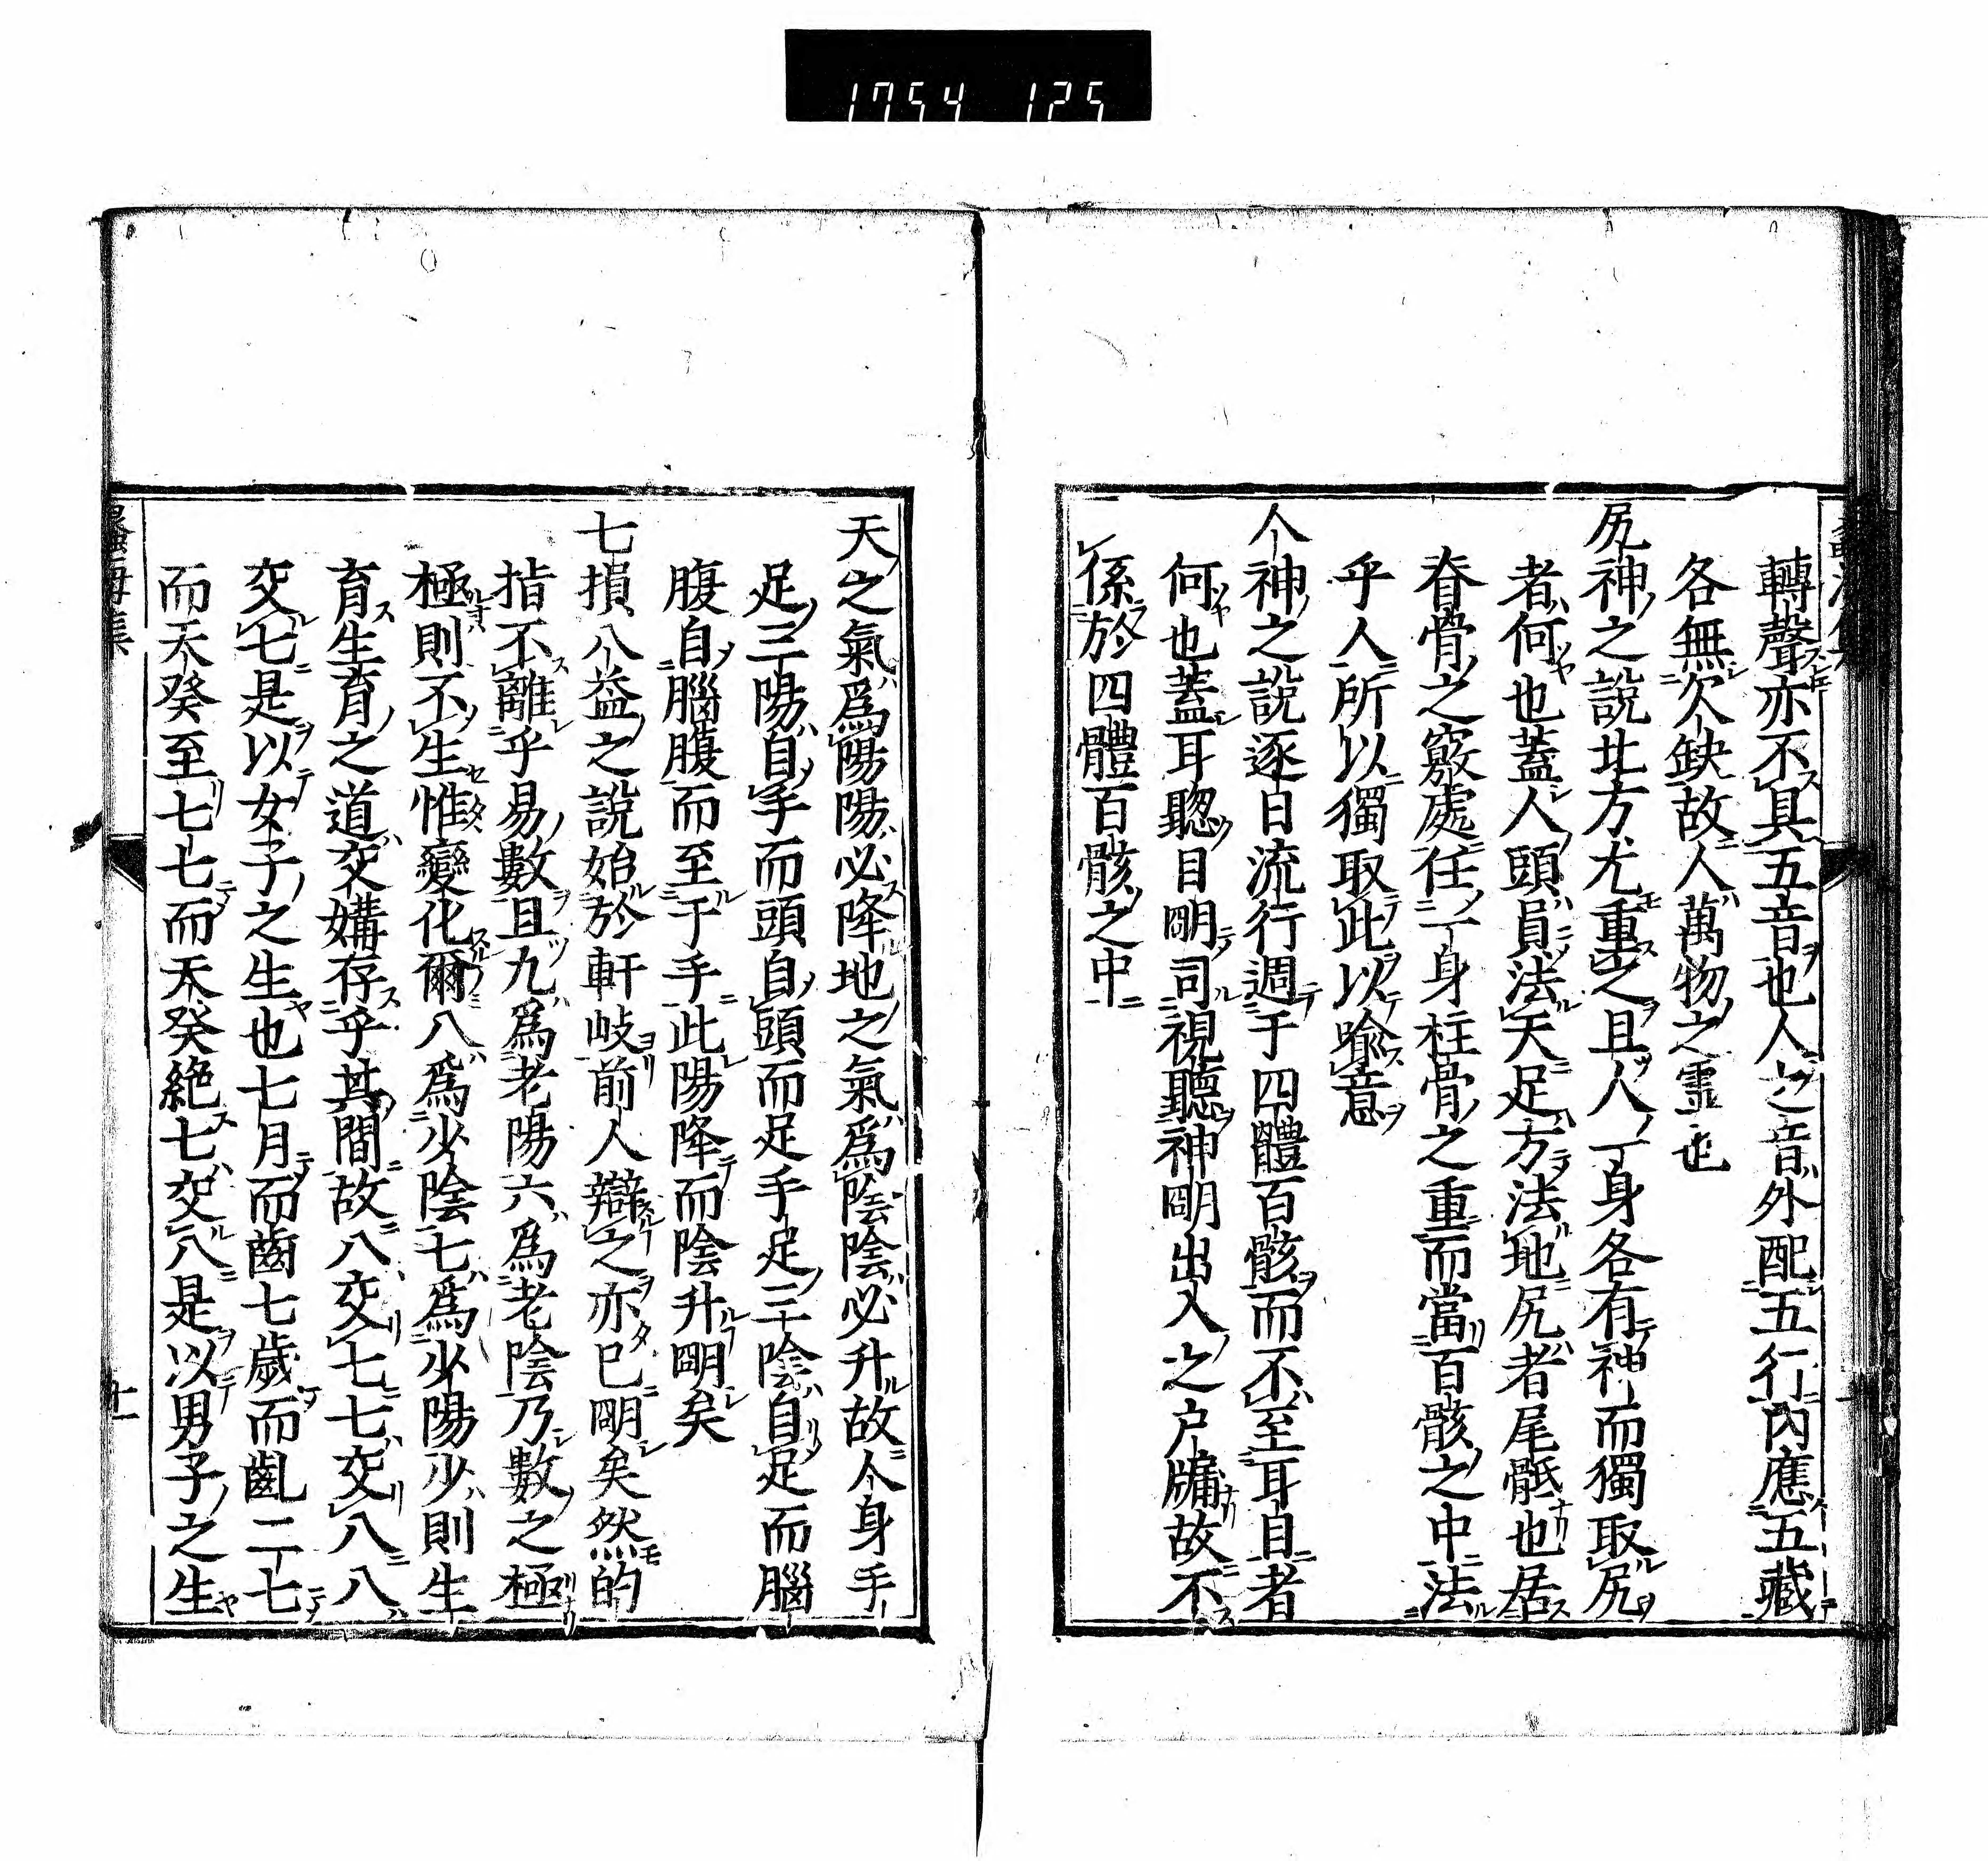 1754 125
轉聲亦不具五音也人之音外配五行內應五藏
各無欠缺故人萬物之霊也
尻神之說北方尤重之且人一身各有神而獨取尻
者何也蓋人頭員法天足方法地尻者尾骶也居
脊骨之竅處任一身柱骨之重而當百骸之中法
乎人所以獨取此以喩意
人神之說逐日流行週于四體百骸而不至耳目者
何也蓋耳聦目明司視聽神明出入之户牖故不
係於四體百骸之中
天之氣爲陽陽必降地之氣爲陰陰必升故人身手
足三陽自手而頭自頭而足手足三陰自足而腦
腹自腦腹而至于手此陽降而陰升明矣
七損八益之說始於軒岐前人辯之亦已明矣然的
指不離乎易數且九爲老陽六爲老陰乃數之極
極則不生惟變化爾八爲少陰七爲少陽少則生
育生育之道交媾存乎其間故八交七七交八八
交七是以女子之生也七月而齒七歲而齔二七
而天癸至七七而天癸絶七交八是以男子之生
十一